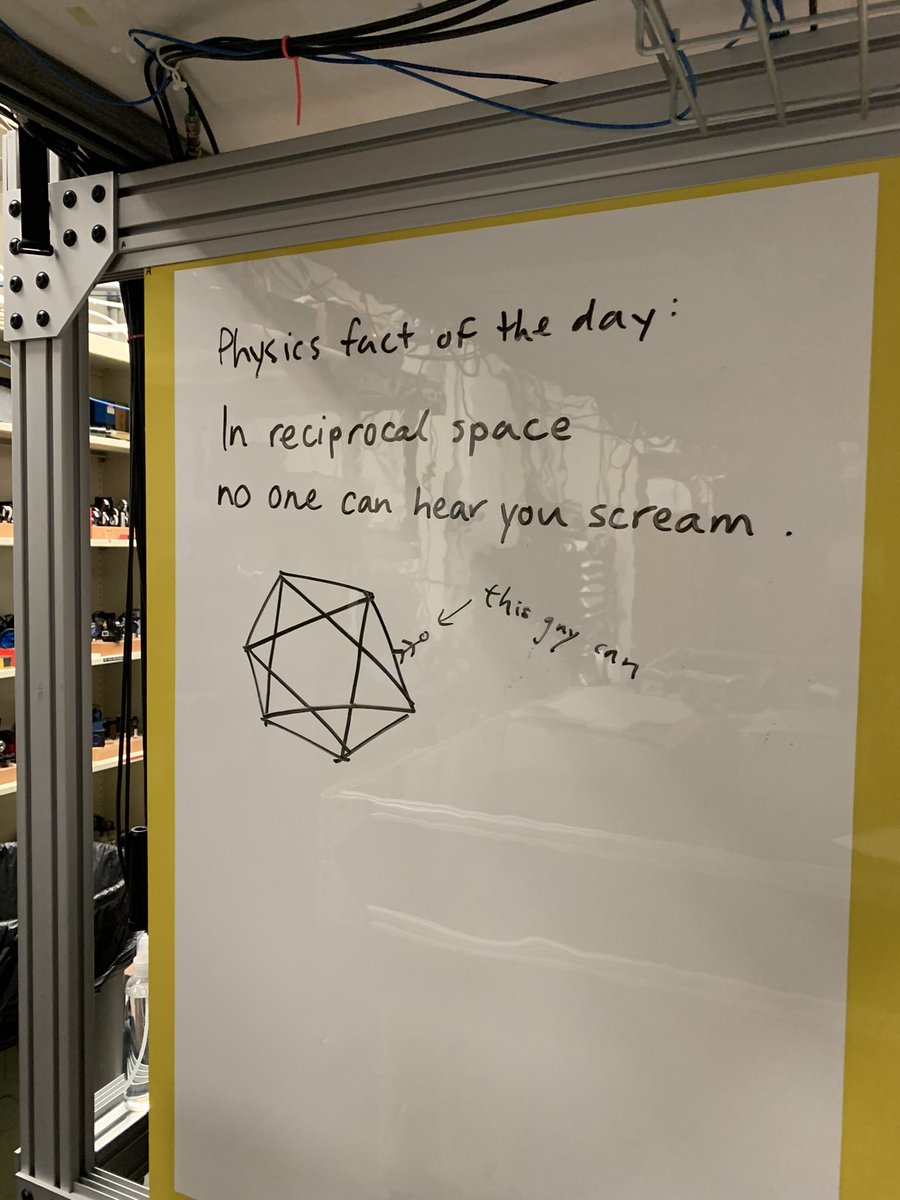 Physics fact of the day:
In reciprocal space
no one can hear you scream.
this guy can